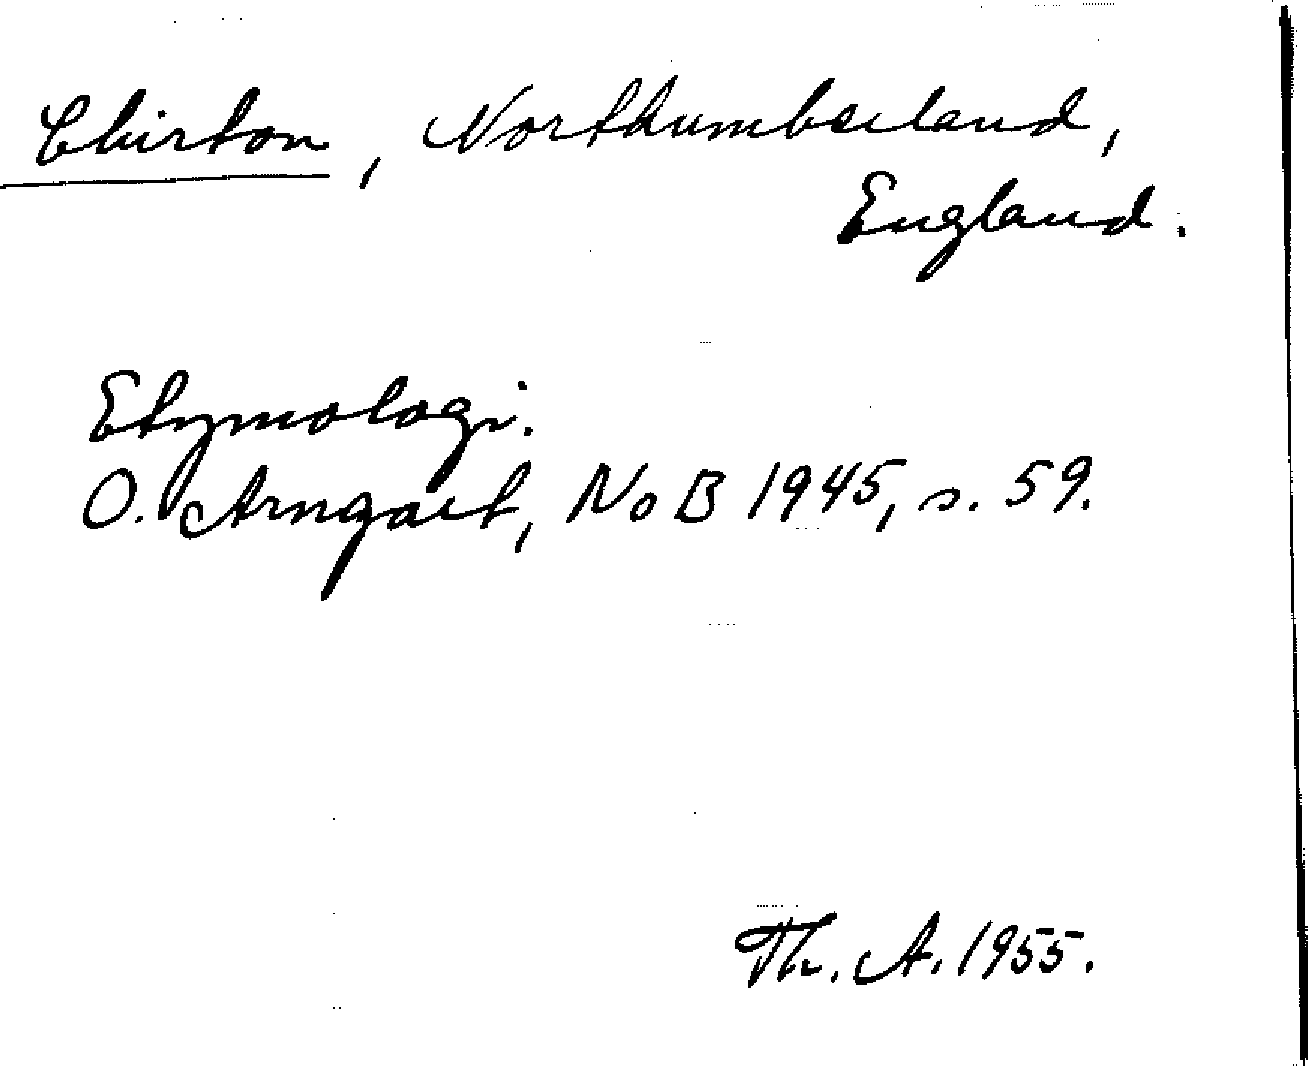 Chirton, Northumberland,
England.
Etymologi.
O. Arngart, NoB 1945, s. 59.
Th. A. 1955.